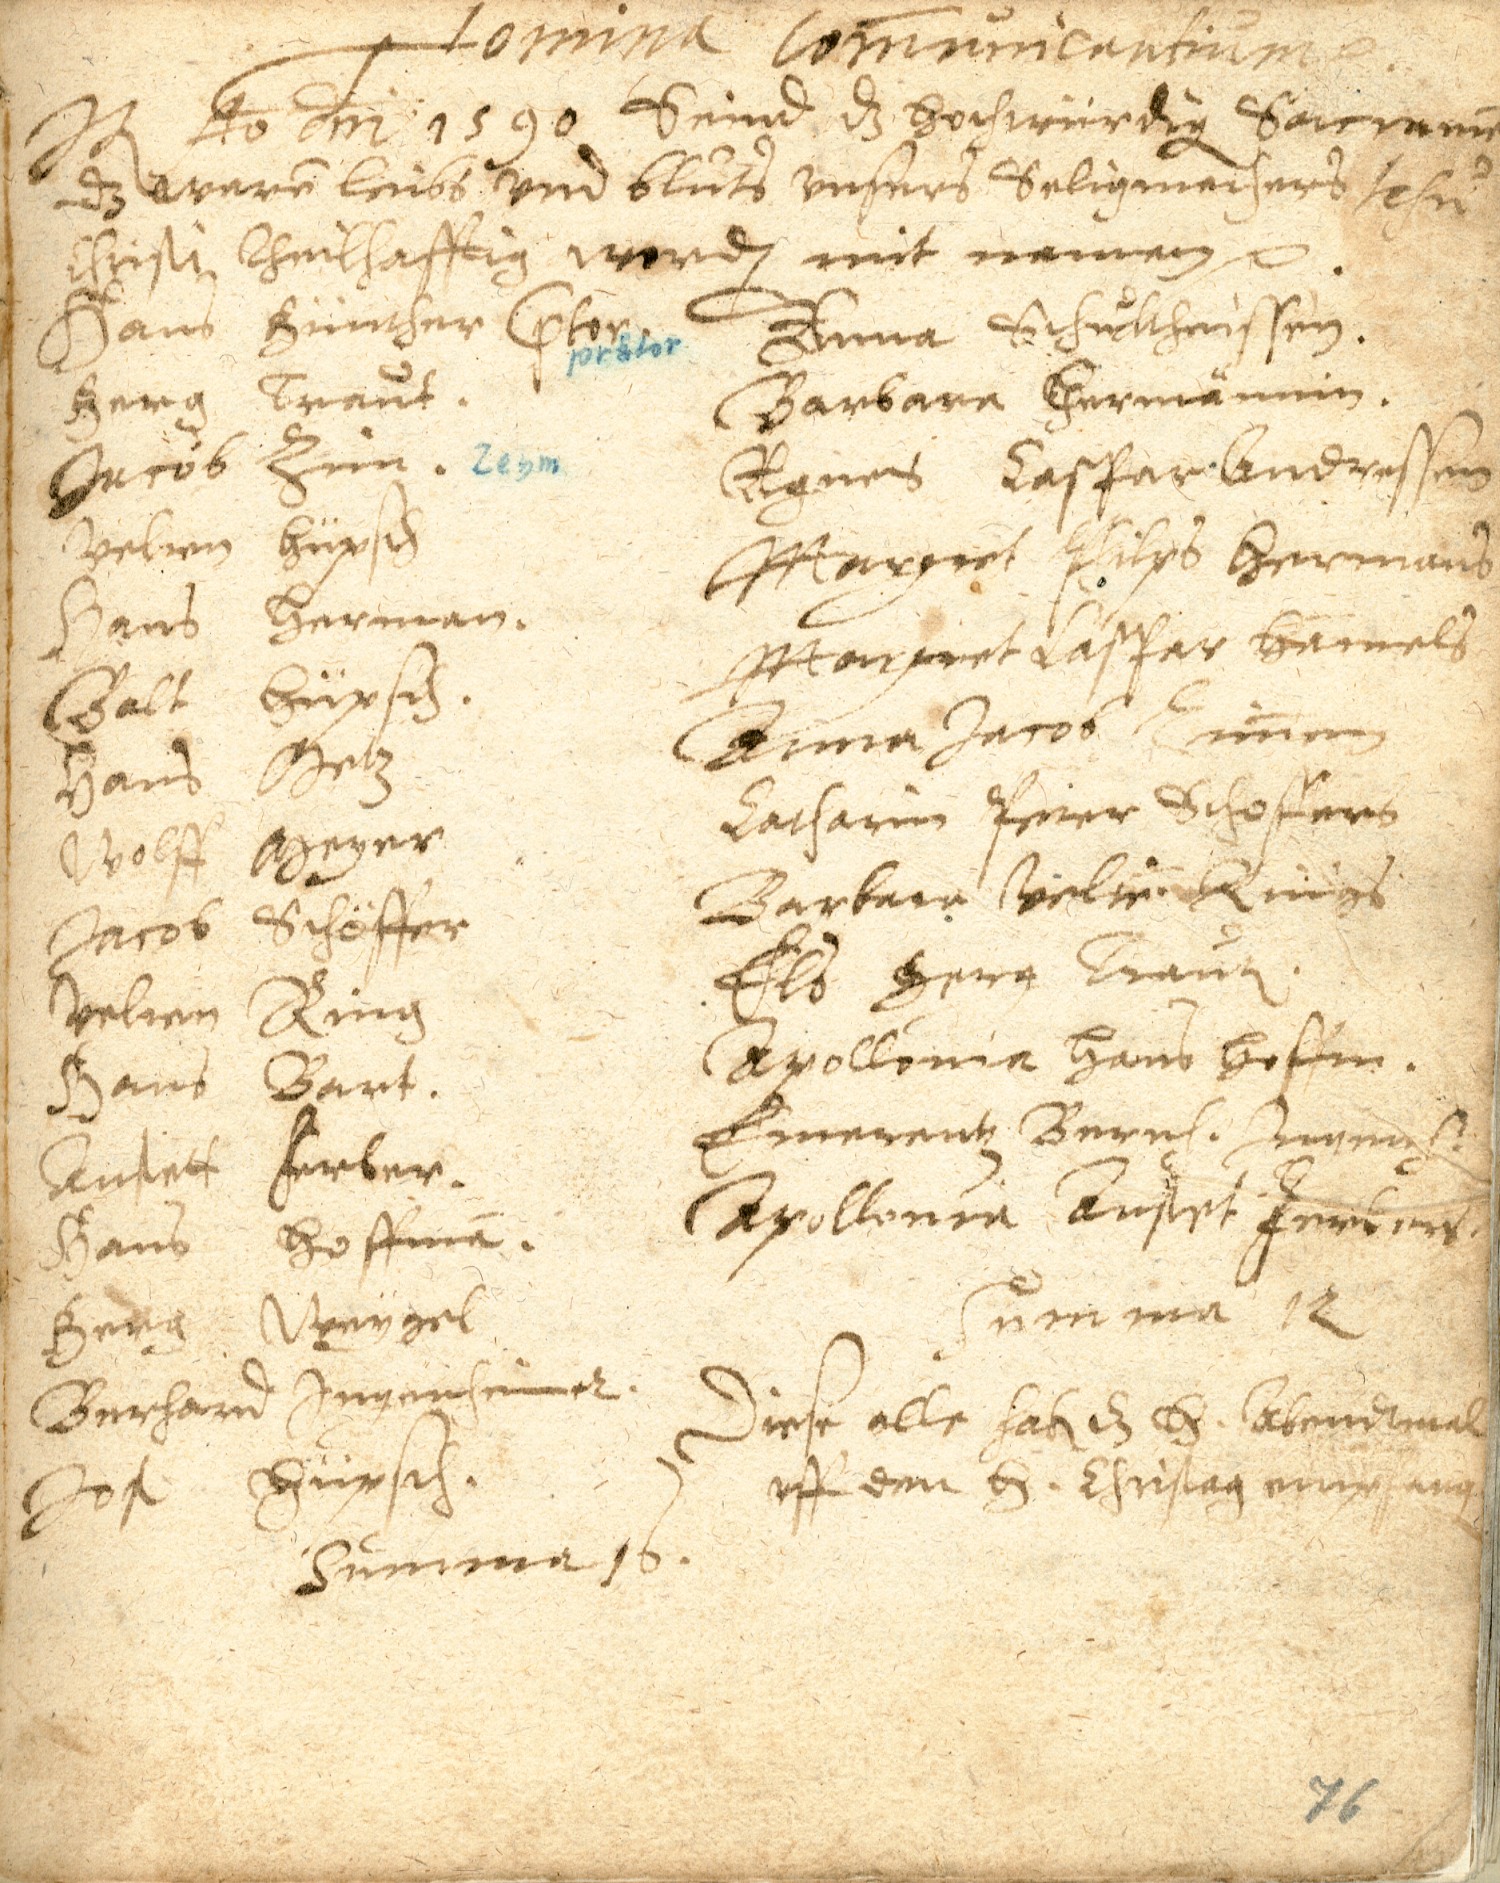 Nomina Communicantium.
In Ao dni 1590 Seind dz hochwürdig Sacrament
dz waren leibs vnd bluts vnsers Seligmachers Jesu
Christi theilhafftig word mit namen.
Hans Günther
prätor
Gerg Traut.
Jacob Zim. Zehm
Velten hüpsch
Hans Herman.
Balt hüpsch.
Hans Metz
Wolff Meyer
Jacob Schöffer
Velten Ring
Hans Bart.
Anstett ferber.
Hans Hoffmā.
Gerg Weygel
Berhard Ingenheimer.
Jost Hüpsch.
Summa 16.
Anna Schultheissen.
Barbara Hermännin.
Agnes Caspar Andressen
Margret Philps Hermans
Margret Caspar Hamels
Anna Jacob Zimen
Catharin Peter Schoffers
Barbara Velte Rings
Els Gerg Trautz.
Apollonia Hans Hoffm.
Emerentz Bernh. Ingenh.
Apollonia Anstet Ferbers.
Summa 12
Diese alle hab dz H. Abendmal
vff den H. Christag empfang
76